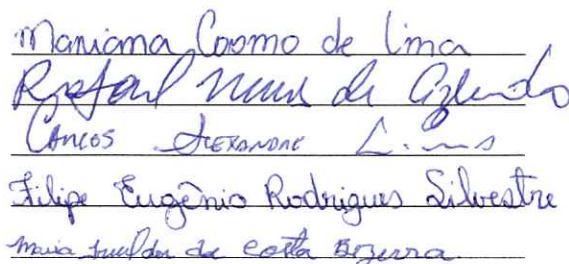 Mariana Cosmo de Lima
Rafael de Azevedo
Carlos Alexandre
Filipe Eugênio Rodrigues Silvestre
Maria da Costa Bezerra